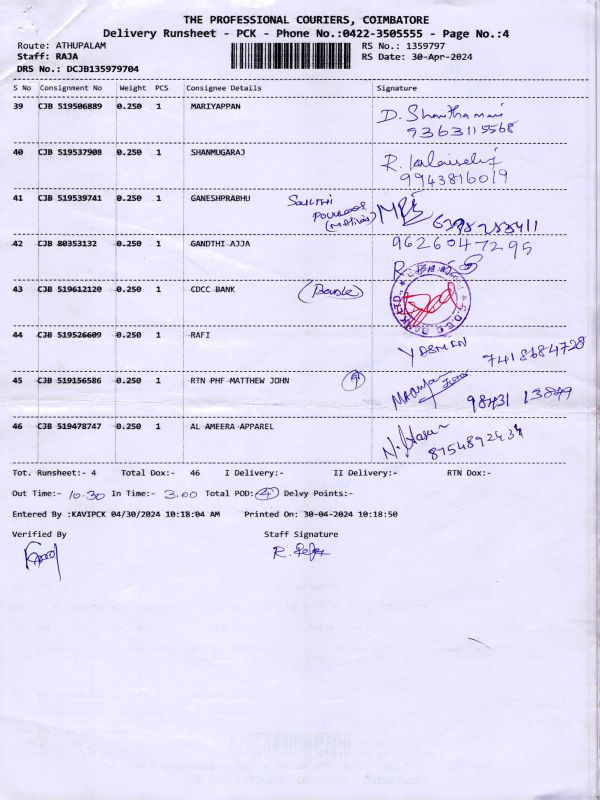 THE PROFESSIONAL COURIERS, COIMBATORE
Delivery Runsheet - PCK - Phone No.:0422-3505555 - Page No.:4
Route: ATHUPALAM RS No.: 1359797
Staff: RAJA RS Date: 30-Apr-2024
DRS No.: DCJB135979704
S No Consignment No Weight PCS Consignee Details Signature
39 CJB 519506889 0.250 1 MARIYAPPAN D. Shanthamani
9363115568
40 CJB 519537908 0.250 1 SHANMUGARAJ R. kalaiselvi
9943816019
41 CJB 519539741 0.250 1 GANESHPRABHU
42 CJB 80353132 0.250 1 GANDTHI AJJA 9626047295
43 CJB 519612120 0.250 1 CDCC BANK
44 CJB 519526609 0.250 1 RAFI YASMEN 7418684728
45 CJB 519156586 0.250 1 RTN PHF MATTHEW JOHN
46 CJB 519478747 0.250 1 AL AMEERA APPAREL
Tot. Runsheet:- 4 Total Dox:- 46 I Delivery:- II Delivery:- RTN Dox:-
Out Time:- 10.30 In Time:- 3.00 Total POD:- 4 Delvy Points:-
Entered By :KAVIPCK 04/30/2024 10:18:04 AM Printed On: 30-04-2024 10:18:50
Verified By Staff Signature